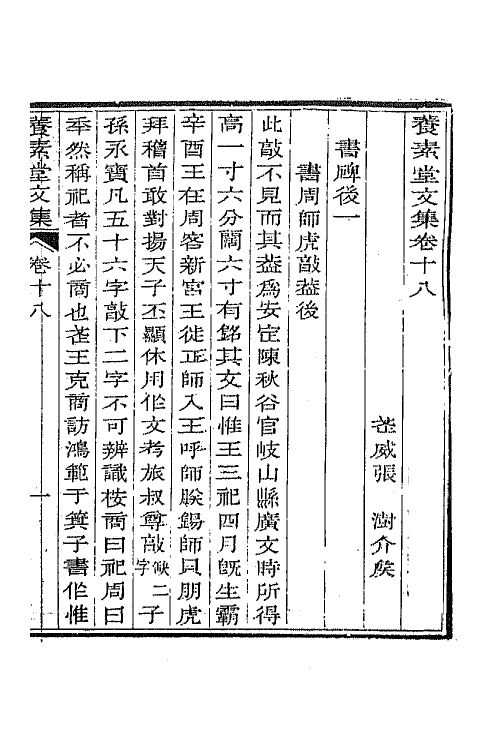 養素堂文集卷十八
武威張　澍介矦
書碑後一
書周師虎敲葢後
此敲不見而其葢爲安定陳秋谷官岐山縣廣文時所得
高一寸六分闊六寸有銘其文曰惟王三祀四月旣生霸
辛酉王在周客新宮王徙正師入王呼師朕錫師貝朋虎
拜稽首敢對揚天子丕顯休用作文考旅叔尊敲缺二字子
孫永寶凡五十六字敲下二字不可辨識桉商曰祀周曰
年然稱祀者不必商也武王克商訪鴻範于箕子書作惟
養素堂文集
卷十八
一